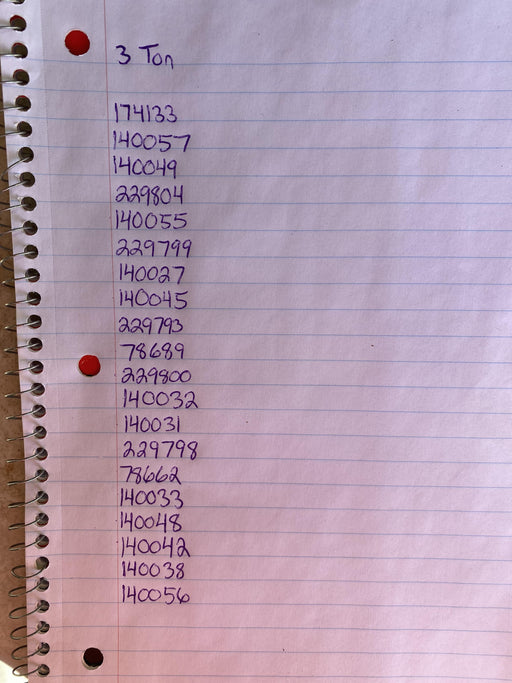 3 Ton
174133
140057
140049
229804
140055
229799
140027
140045
229793
78689
229800
140032
140031
229798
78662
140033
140048
140042
140038
140056